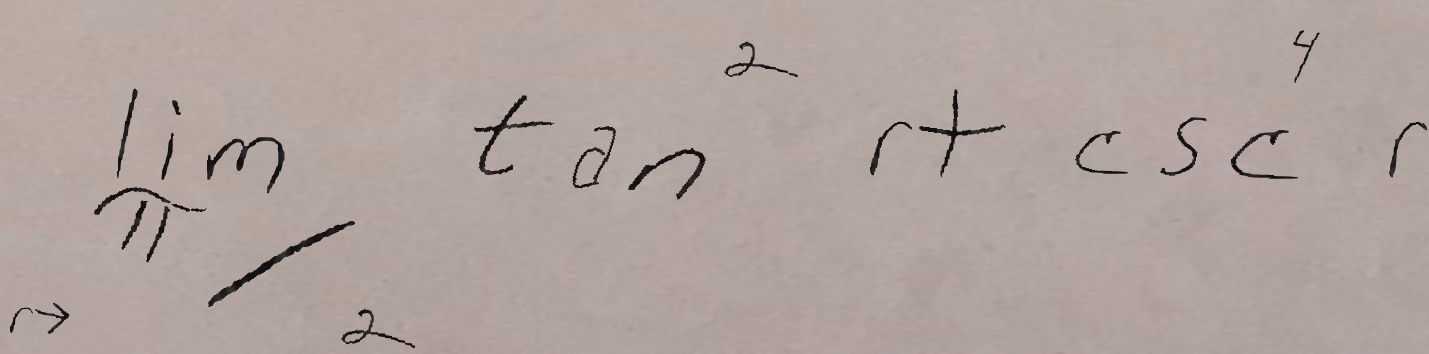 lim_{r→π/2} tan² r + csc⁴ r